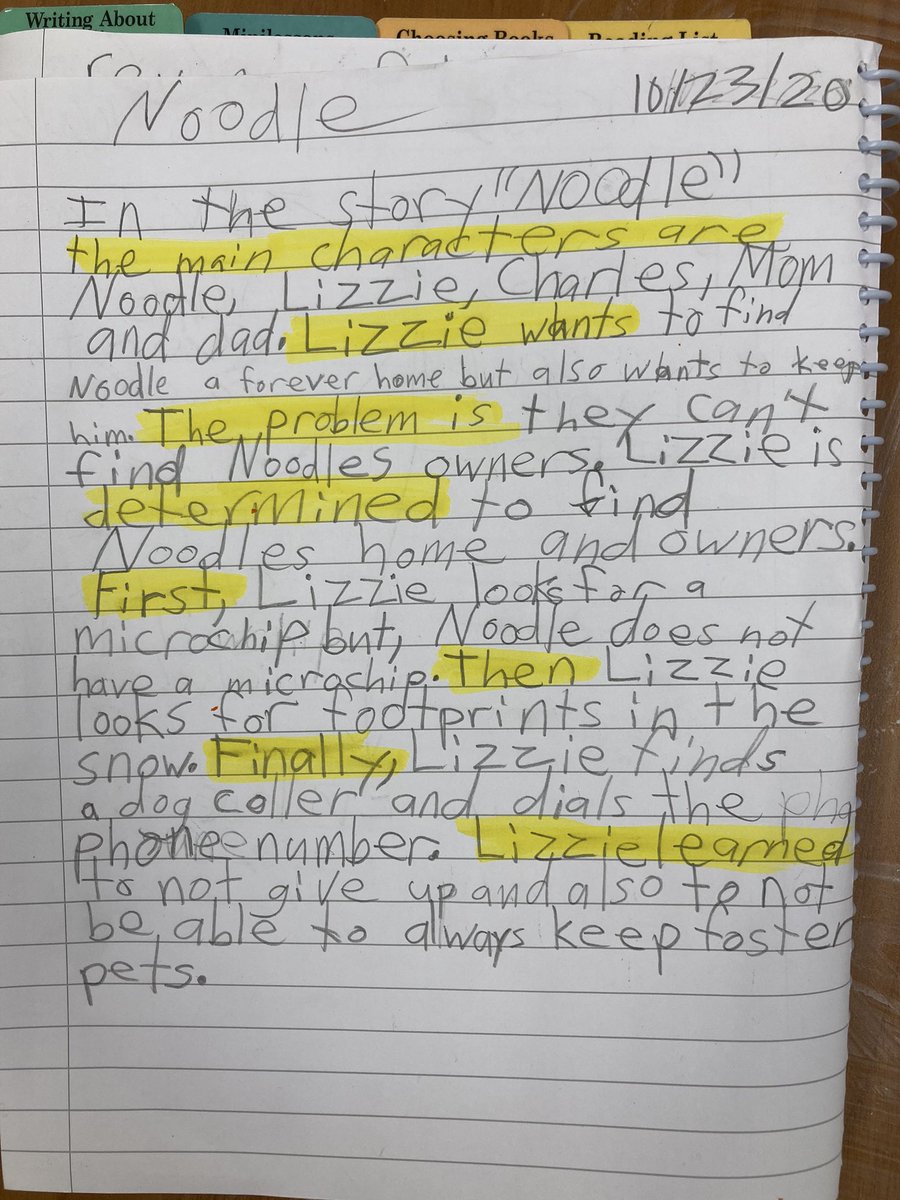 Writing About
Choosing Books
Reading List
Noodle
10/23/20
In the story "Noodle"
the main characters are
Noodle, Lizzie, Charles, Mom
and dad. Lizzie wants to find
Noodle a forever home but also wants to keep
him. The problem is they can't
find Noodles owners. Lizzie is
determined to find
Noodles home and owners.
First, Lizzie looks for a
microchip but, Noodle does not
have a microchip. Then Lizzie
looks for footprints in the
snow. Finally, Lizzie finds
a dog coller and dials the pho
phonenumber. Lizzie learned
to not give up and also to not
be able to always keep foster
pets.